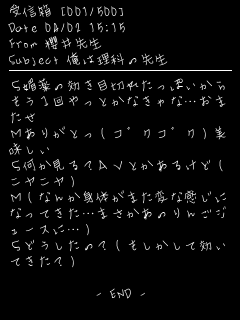 受信箱 [001/500]
Date 04/02 15:15
From 櫻井先生
Subject 俺は理科の先生
S媚薬の効き目切れたっぽいから
もう1回やっとかなきゃな…おま
たせ
Mありがとっ(ゴクゴク)美
味しい
S何か見る?AVとかあるけど(
ニヤニヤ)
M(なんか身体がまた変な感じに
なってきた…まさかあのりんごジ
ュースに…)
Sどうしたの?(もしかして効い
てきた?)
- END -